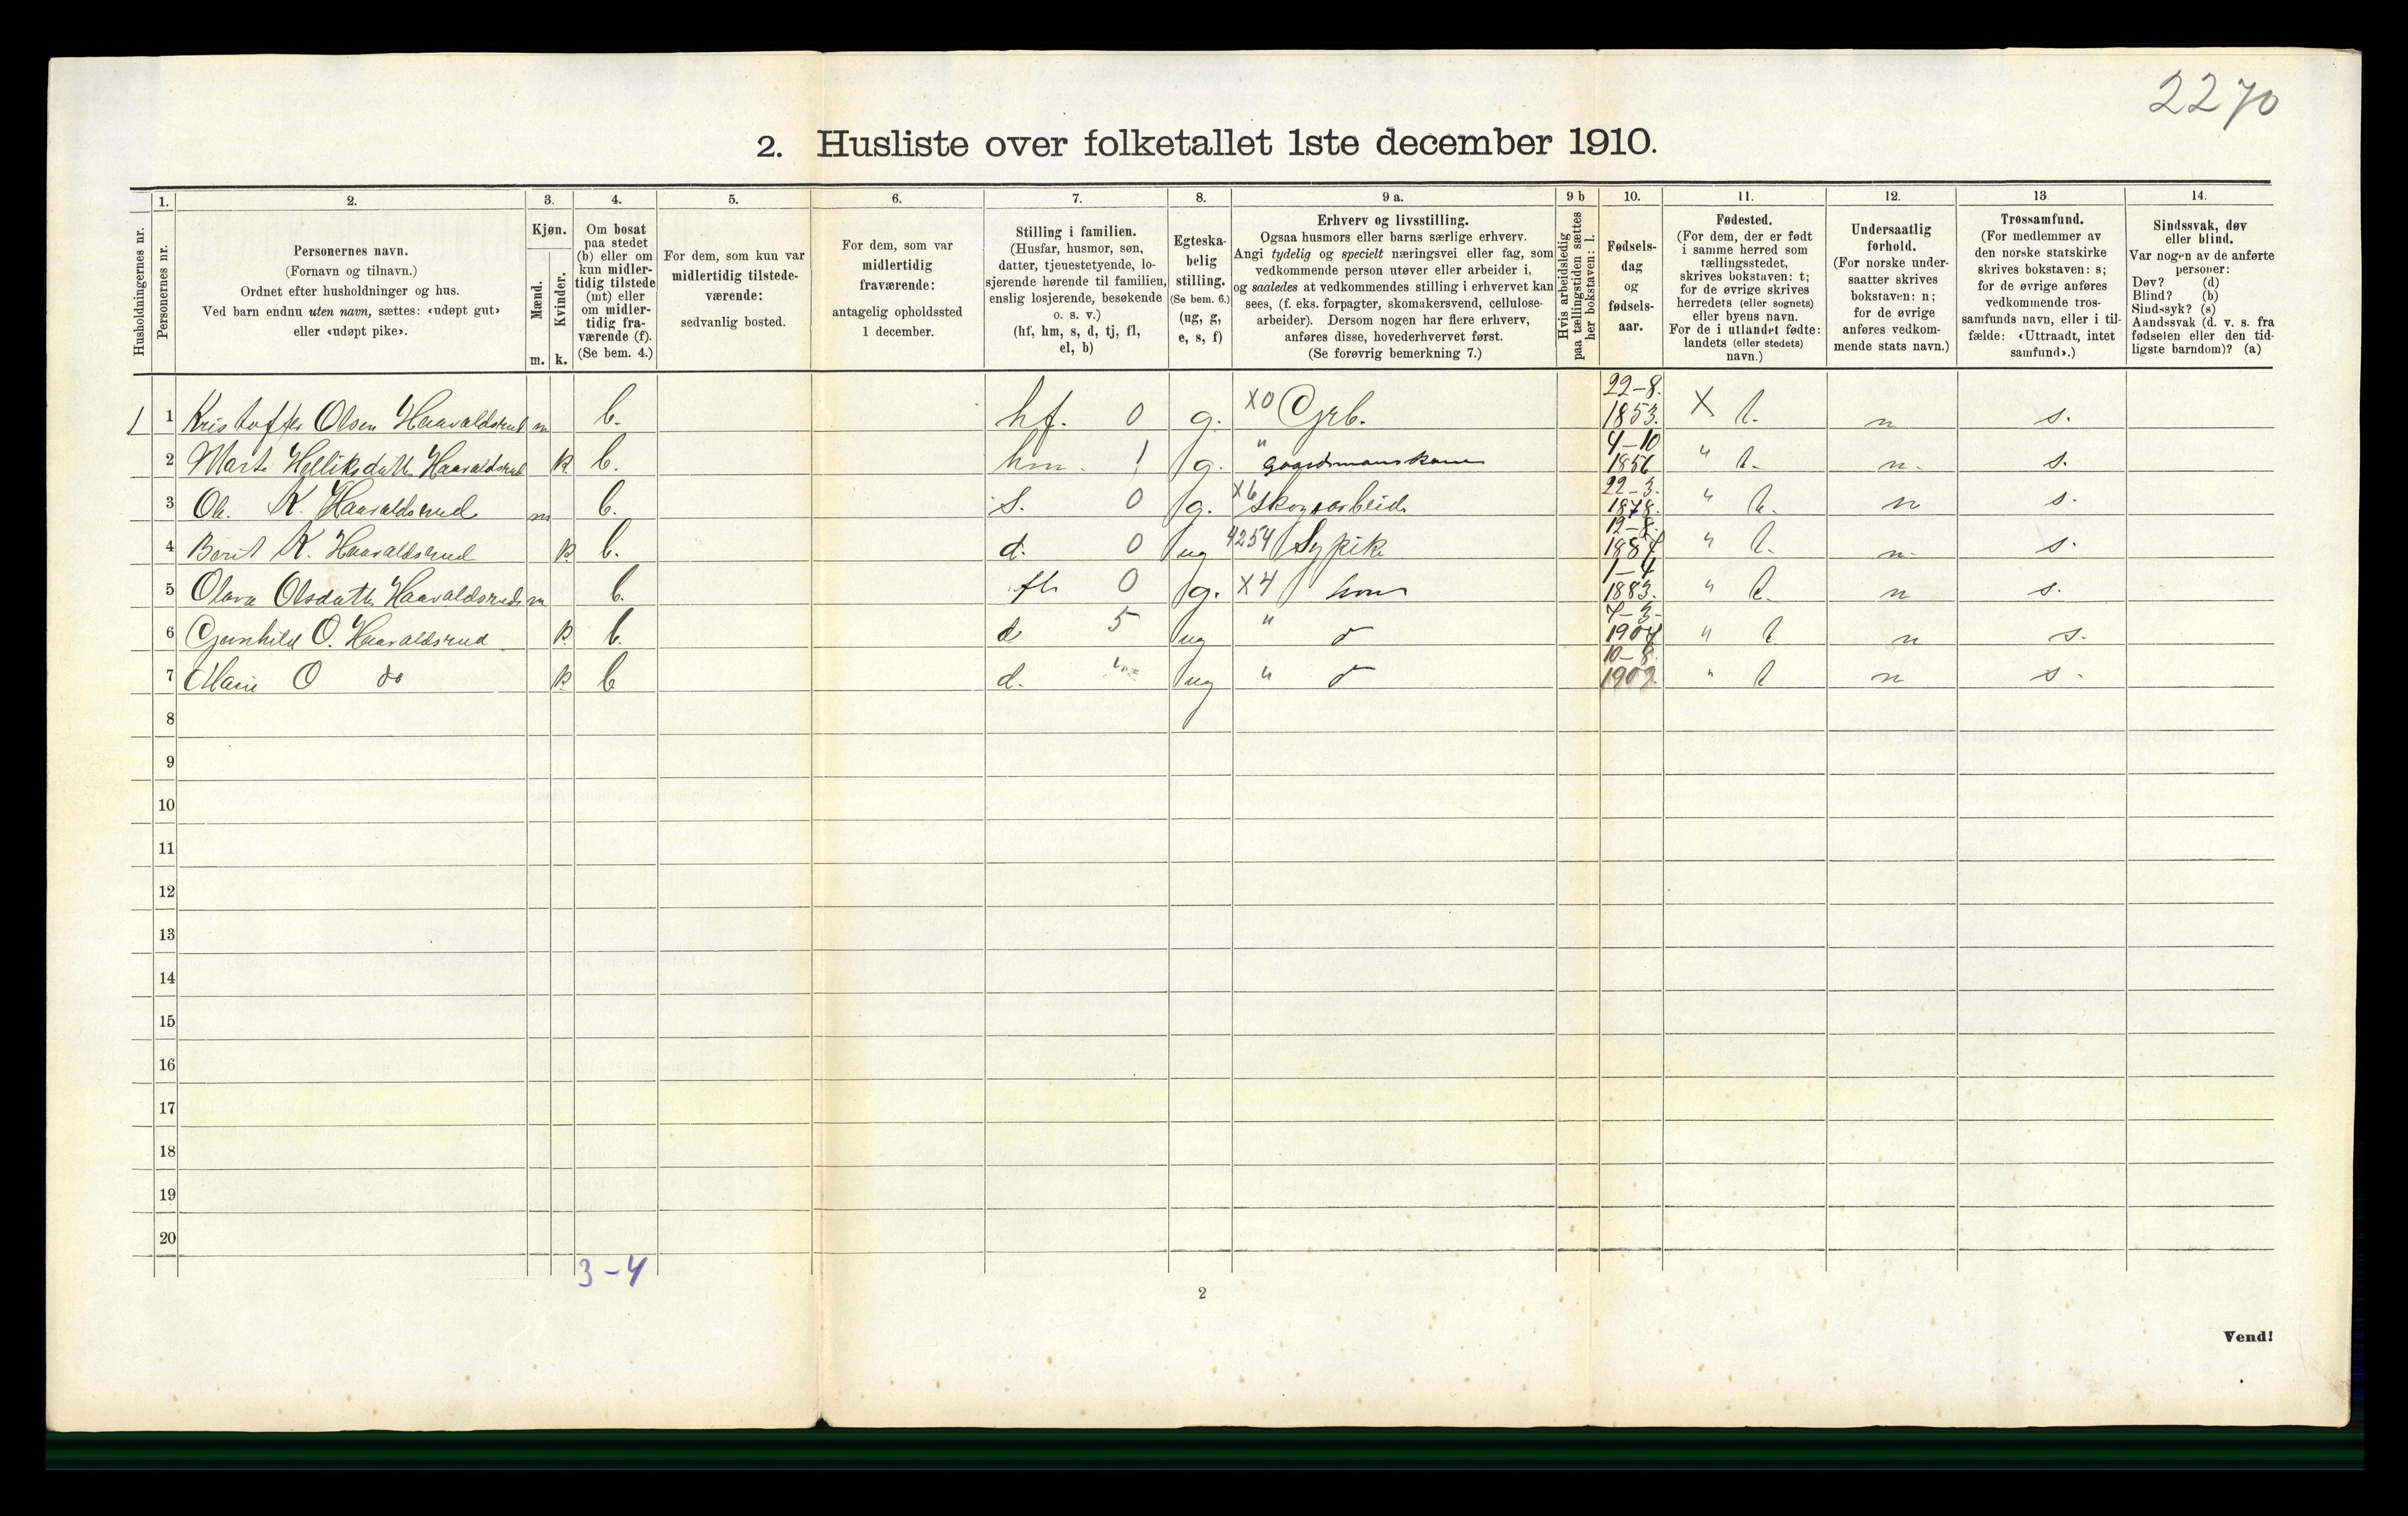 2270
2. Husliste over folketallet 1ste december 1910.
1. 2. 3. 4. 5. 6. 7. 8. 9 a. 9 b 10. 11. 12. 13 14.
Husholdningernes nr.
Personernes nr.
Personernes navn.
(Fornavn og tilnavn.)
Ordnet efter husholdninger og hus.
Ved barn endnu uten navn, sættes: «udøpt gut»
eller «udøpt pike».
Kjøn.
Mænd.
m.
Kvinder.
k.
Om bosat
paa stedet
(b) eller om
kun midler-
tidig tilstede
(mt) eller
om midler-
tidig fra-
værende (f).
(Se bem. 4.)
For dem, som kun var
midlertidig tilstede-
værende:
sedvanlig bosted.
For dem, som var
midlertidig
fraværende:
antagelig opholdssted
1 december.
Stilling i familien.
(Husfar, husmor, søn,
datter, tjenestetyende, lo-
sjerende hørende til familien,
enslig losjerende, besøkende
o. s. v.)
(hf, hm, s, d, tj, fl,
el, b)
Egteska-
belig
stilling.
(Se bem. 6.)
(ug, g,
e, s, f)
Erhverv og livsstilling.
Ogsaa husmors eller barns særlige erhverv.
Angi tydelig og specielt næringsvei eller fag, som
vedkommende person utøver eller arbeider i,
og saaledes at vedkommendes stilling i erhvervet kan
sees, (f. eks. forpagter, skomakersvend, cellulose-
arbeider). Dersom nogen har flere erhverv,
anføres disse, hovederhvervet først.
(Se forøvrig bemerkning 7.)
Hvis arbeidsledig
paa tællingstiden sættes
her bokstaven: l.
Fødsels-
dag
og
fødsels-
aar.
Fødested.
(For dem, der er født
i samme herred som
tællingsstedet,
skrives bokstaven: t;
for de øvrige skrives
herredets (eller sognets)
eller byens navn.
For de i utlandet fødte:
landets (eller stedets)
navn.)
Undersaatlig
forhold.
(For norske under-
saatter skrives
bokstaven: n;
for de øvrige
anføres vedkom-
mende stats navn.)
Trossamfund.
(For medlemmer av
den norske statskirke
skrives bokstaven: s;
for de øvrige anføres
vedkommende tros-
samfunds navn, eller i til-
fælde: «Uttraadt, intet
samfund».)
Sindssvak, døv
eller blind.
Var nogen av de anførte
personer:
Døv? (d)
Blind? (b)
Sindssyk? (s)
Aandssvak (d. v. s. fra
fødselen eller den tid-
ligste barndom)? (a)
1 1 Kristoffer Olsen Haavaldsrud m b. hf. 0 g. X0 Grb. 22-8. 1853. X t. n s.
2 Marte Helliksdatter Haavaldsrud k b. hm. 1 g. " gaardmanskone 4-10 1856 " t. n. s.
3 Ole K. Haavaldsrud m b. s. 0 g. X6 Skogsarbeid 22-3. 1878. " t. n s.
4 Berit K. Haavaldsrud k b. d. 0 ug 4254 Sypike 12-8. " t. n. s.
5 Olava Olsdatter Haavaldsrud m b. fl 0 g. X4 1-4 1883. " t. n s.
6 Gunhild O. Haavaldsrud k b. d 5 ug " 7-3- " t n s.
7 Marie O do k b d. " ug " 10-8. " t n s.
8
9
10
11
12
13
14
15
16
17
18
19
20
3-4
2
Vend!